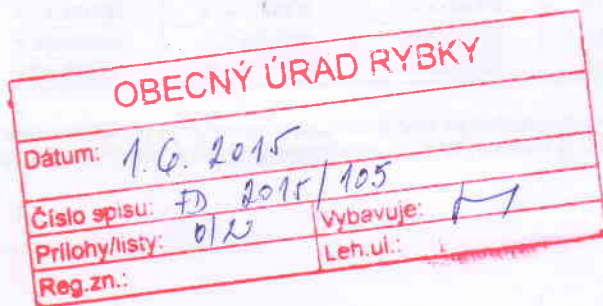 OBECNÝ ÚRAD RYBKY
Dátum: 1.6. 2015
Číslo spisu: FD 2015/105
Prílohy/listy: 0/20 Vybavuje:
Reg.zn.: Leh.ul.: